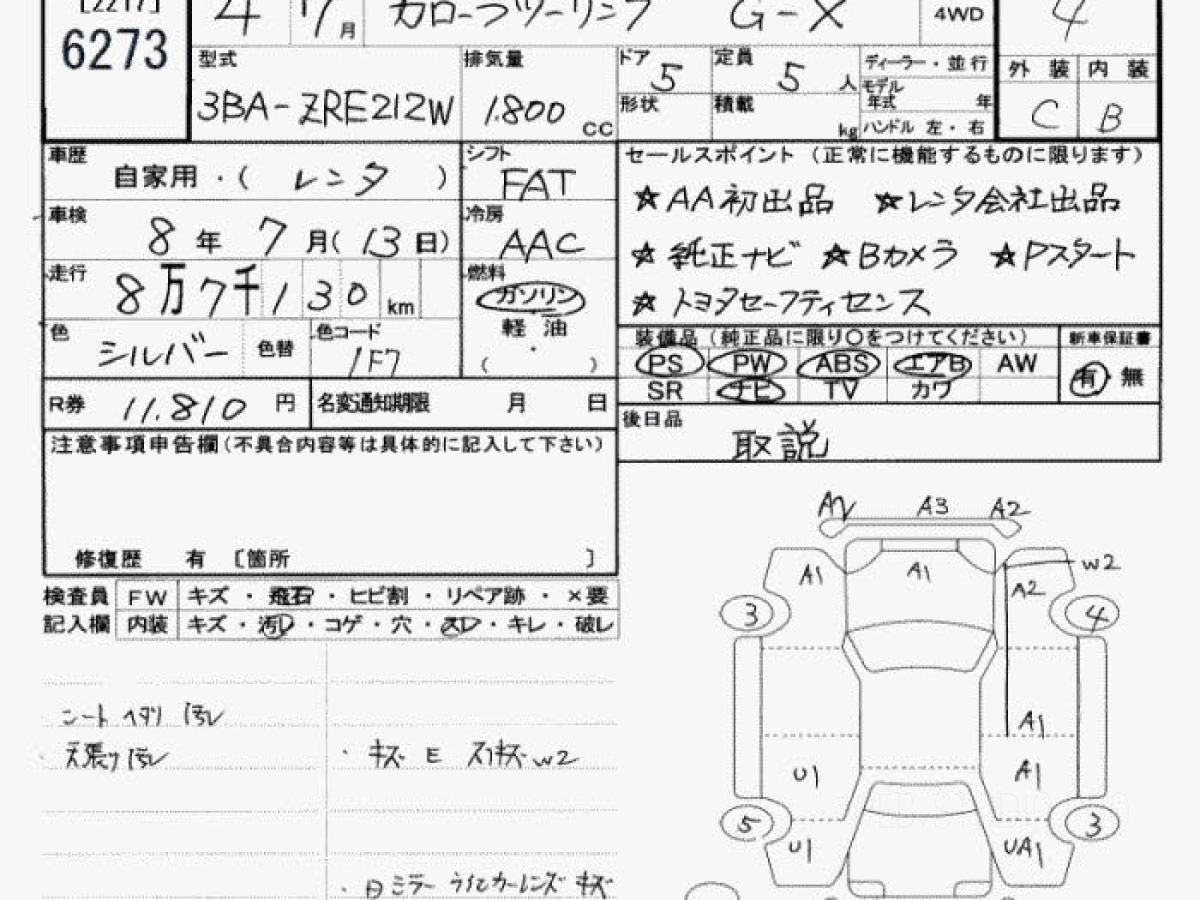 [2217]
6273
4 7月 カローラツーリング G-X 4WD 4
型式 排気量 ドア 5 定員 5人 ディーラー・並行 外装 内装
3BA-ZRE212W 1.800 CC 形状 積載 kg モデル年式 年 ハンドル 左・右 C B
車歴 自家用・( レンタ ) シフト FAT
車検 8年 7月(13日) 冷房 AAC
走行 8万7千130km 燃料 ガソリン 軽油 ( )
色 シルバー 色替 色コード 1F7
R券 11.810円 名変通知期限 月 日
セールスポイント (正常に機能するものに限ります)
☆AA初出品 ☆レンタ会社出品
☆純正ナビ ☆Bカメラ ☆Pスタート
☆トヨタセーフティセンス
装備品 (純正品に限り〇をつけてください) 新車保証書
PS PW ABS エアB AW 有 無
SR ナビ TV カワ
後日品 取説
注意事項申告欄(不具合内容等は具体的に記入して下さい)
修復歴 有 [箇所 ]
検査員 FW キズ・飛石・ヒビ割・リペア跡・×要
記入欄 内装 キズ・汚レ・コゲ・穴・スレ・キレ・破レ
シート ヘタリ 汚レ
天張り汚レ
・キズ E スリキズ W2
・日ミラー ウインカーレンズ キズ
A2 A3 A2
A1 A1 W2
A2
3 4
A1
U1 A1
5 3
U1 UA1